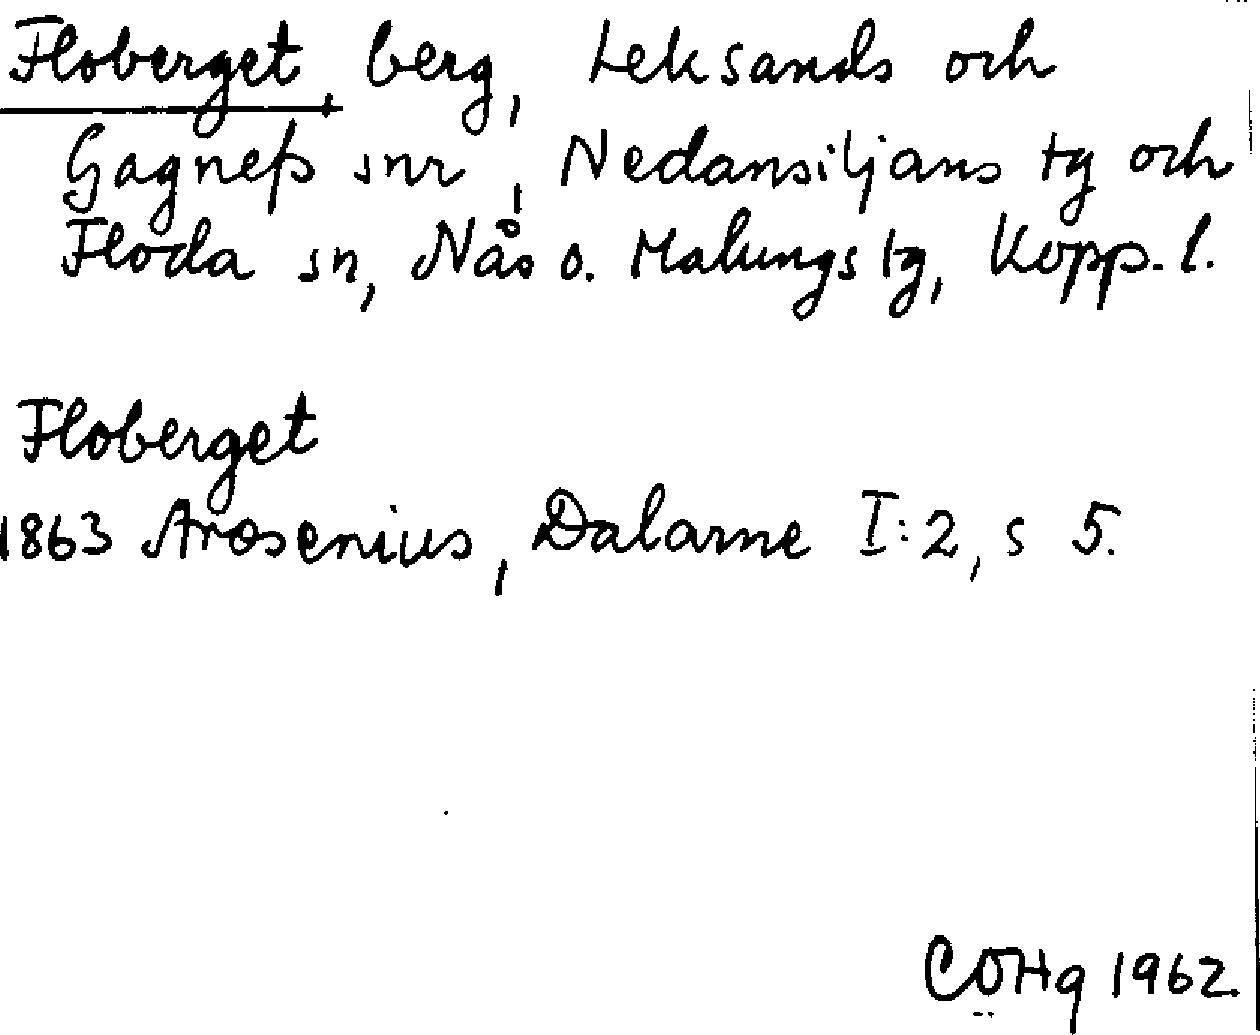 Floberget, berg, Leksands och
Gagnefs snr, Nedansiljans tg och
Floda sn, Nås o. Malungs tg, Kopp. l.
Floberget
1863 Arosenius, Dalarne I:2, s 5.
CÖHg 1962